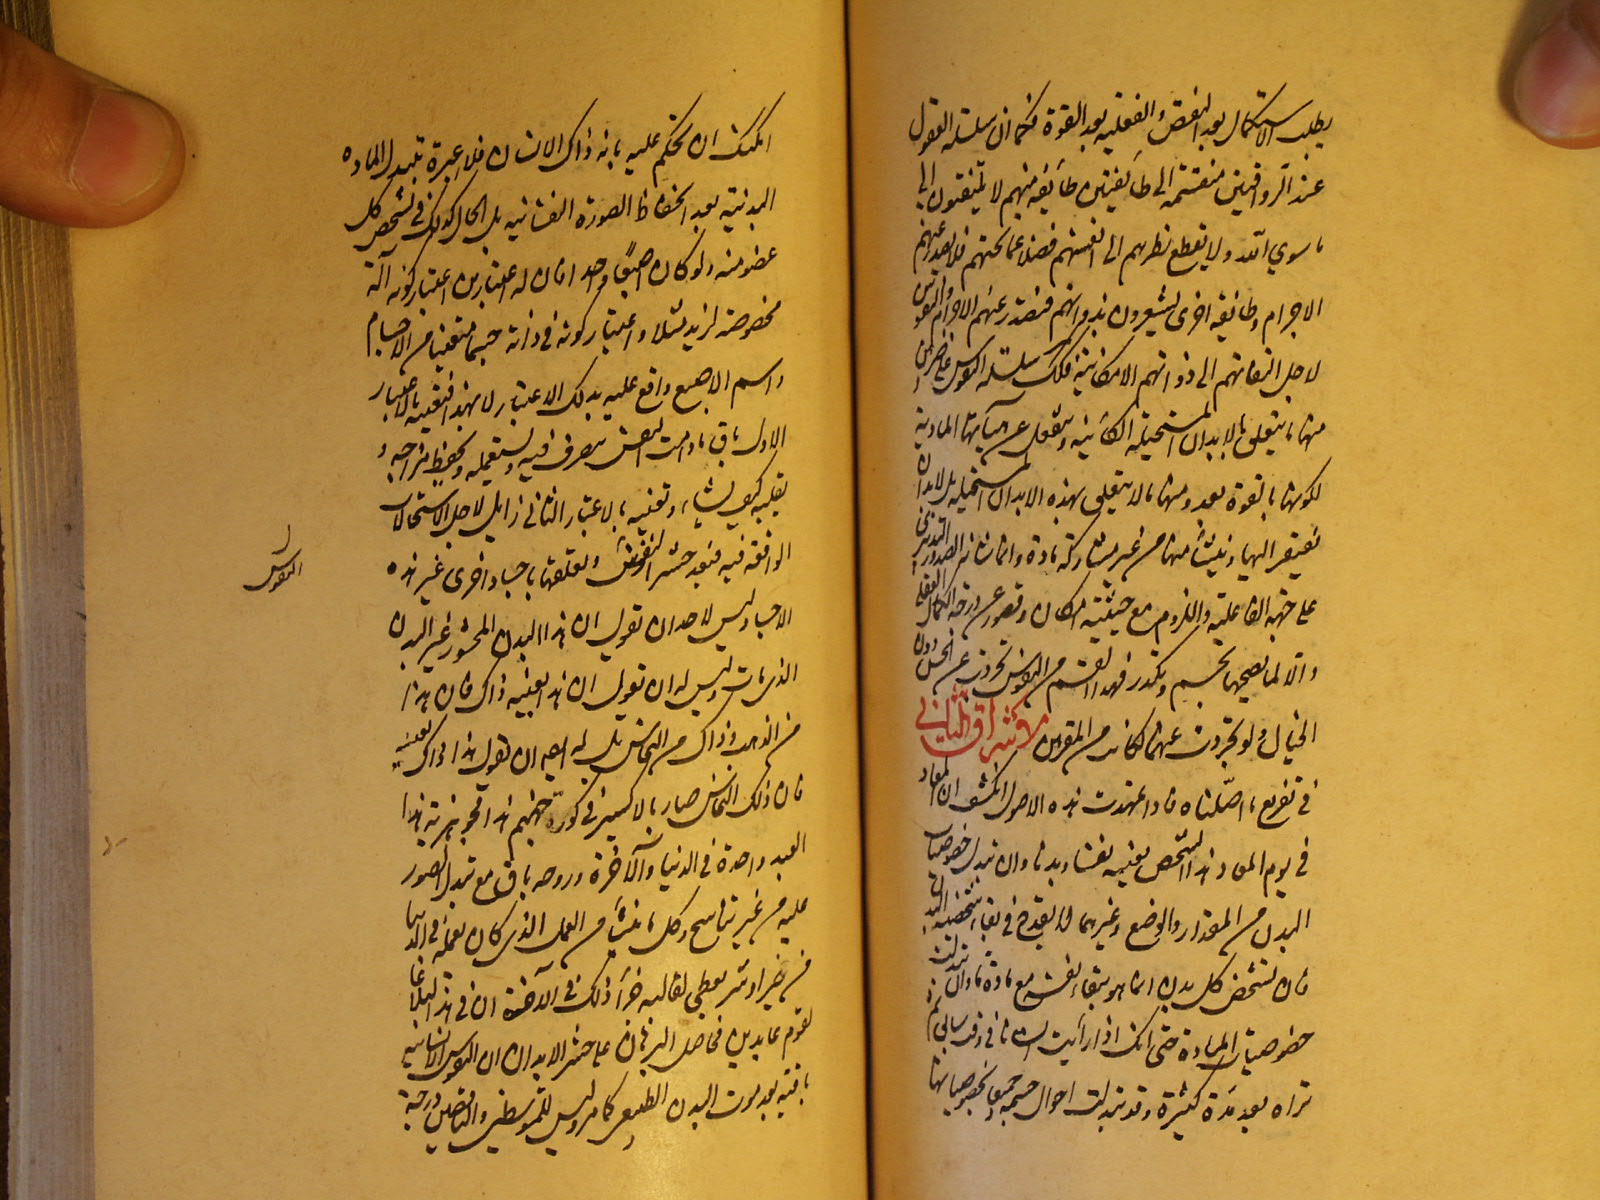 يطلب الاستكمال بعد النقص والفعلية بعد القوة فكما ان سلسلة العقول
عند الرواقيين منقسمة الى طائفتين طائفة منهم لا يلتفتون الى
ما سوى الله ولا يقطع نظرهم الى انفسهم فضلا عما تحتهم فلا يصدر عنهم
الاجرام وطائفة اخرى يشعرون بذواتهم فتصدر عنهم الاجرام والنفوس
لاجل التفاتهم الى ذواتهم الامكانية فكذلك سلسلة النفوس على ضربين
منها ما يتعلق بالابدان المستحيلة الكائنة وتنفعل عن هيآتها المادية
لكونها بالقوة بعد ومنها ما لا يتعلق بهذه الابدان المستحيلة بل الابدان
تفتقر اليها وينشأ منها من غير مشاركة مادة وانما شأنه الصدور التدبيرى
على جهة الفاعلية واللزوم مع حيثية امكان وقصور عن درجة الكمال العقلى
والا لما يصحبها تجسم وتكدر فهذا القسم من النفوس تجردت عن الحس دون
الخيال ولو تجردت عنهما لكانت من المقربين الاشراق الثانى
فى تفريع ما اصلناه فاذا تمهدت هذه الاصول انكشف ان المعاد
فى يوم المعاد هذا الشخص بعينه نفسا وبدنا وان تبدل خصوصيات
البدن من المقدار والوضع وغيرهما لا يقدح فى بقاء شخصية البدن
فان تشخص كل بدن انما هو ببقاء نفسه مع مادة ما وان تبدلت
خصوصيات المادة حتى انك اذا رأيت انسانا فى وقت سابق ثم
تراه بعد مدة كثيرة وقد تبدلت احوال جسمه جميعا بخصوصياتها
امكنك ان تحكم عليه بانه ذاك الانسان فلا عبرة بتبدل المادة
البدنية بعد انحفاظ الصورة النفسانية بل الحال كذلك فى تشخص كل
عضو منه ولو كان اصبعا واحدا فان له اعتبارين اعتبار كونه آلة
مخصوصة لزيد مثلا واعتبار كونه فى ذاته جسما متعينا من الاجسام
واسم الاصبع واقع عليه بذلك الاعتبار لا بهذا فتعينه بالاعتبار
الاول باق ما دامت النفس تتصرف فيه وتستعمله وتحفظ مزاجه و
يقلبه كيف يشاء وتعينه بالاعتبار الثانى زايل لاجل الاستحالات
الواقعة فيه فبعد حشر النفوس وتعلقها باجساد اخرى غير هذه
الاجساد ليس لاحد ان تقول ان هذا البدن المحشور غير البدن
الذى مات وليس له ان تقول ان هذا بعينه ذاك فان هذا
من الذهب وذاك من النحاس بل له ايضا ان يقول هذا ذاك بعينه
فان ذلك النحاس صار بالاكسير فى كورة جهنم هذا فجوهرية هذا
العبد واحدة فى الدنيا والآخرة وروحه باق مع تبدل الصور
عليه من غير تناسخ وكل ما ينشأ من العمل الذى كان يعمله فى الدنيا
من خير او شر يعطى لقالبه جزاء ذلك فى الآخرة ان فى هذا لبلاغا
لقوم عابدين فحاصل البرهان على حشر الابدان ان النفوس الانسانية
باقية بعد موت البدن الطبيعى كما مر وليس للمتوسطين والناقصين درجة
النفوس